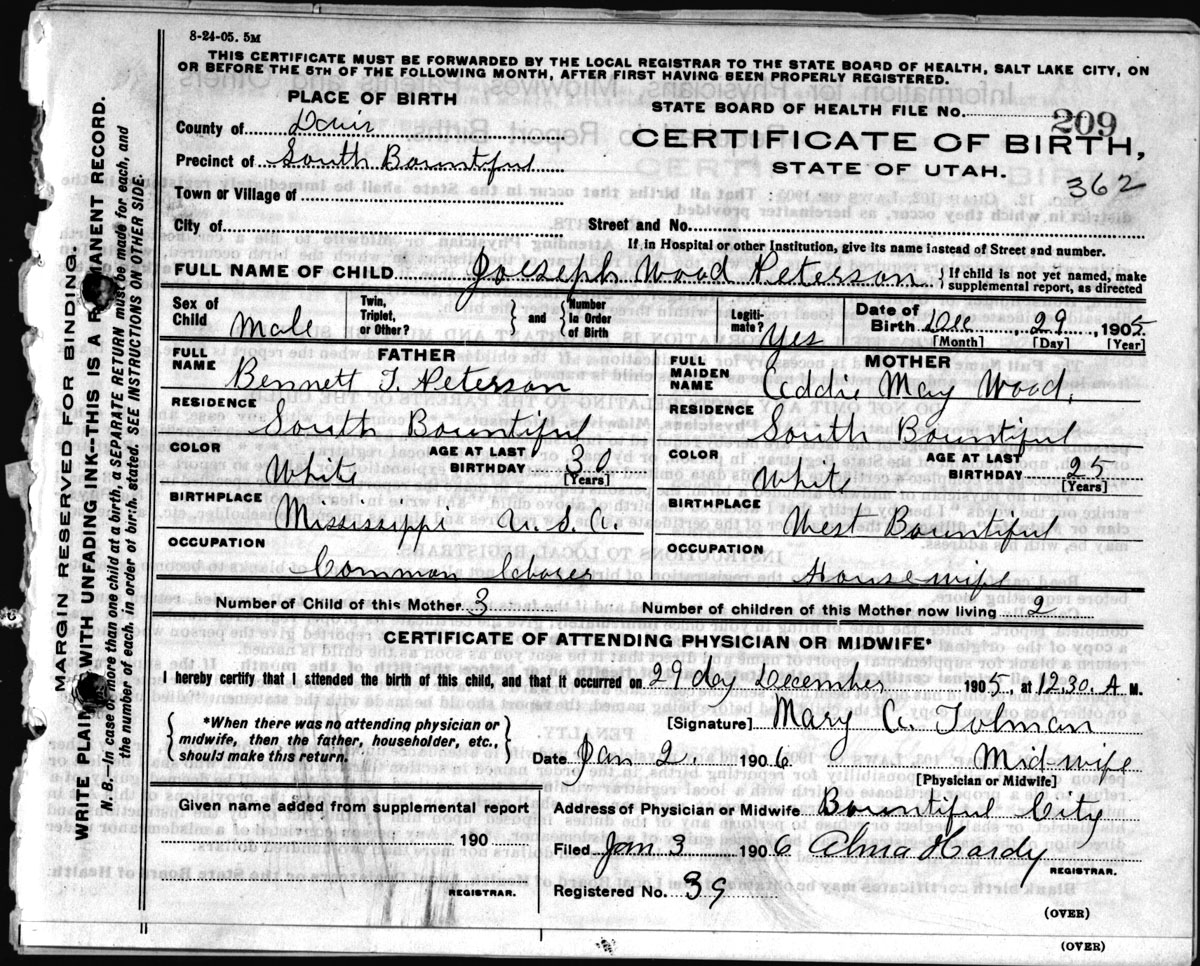 8-24-05. 5M
THIS CERTIFICATE MUST BE FORWARDED BY THE LOCAL REGISTRAR TO THE STATE BOARD OF HEALTH, SALT LAKE CITY, ON
OR BEFORE THE 5TH OF THE FOLLOWING MONTH, AFTER FIRST HAVING BEEN PROPERLY REGISTERED.
MARGIN RESERVED FOR BINDING.
WRITE PLAINLY WITH UNFADING INK--THIS IS A PERMANENT RECORD.
N. B.--In case of more than one child at a birth, a SEPARATE RETURN must be made for each, and
the number of each, in order of birth, stated. SEE INSTRUCTIONS ON OTHER SIDE.
PLACE OF BIRTH
County of Davis
Precinct of South Bountiful
Town or Village of
City of
STATE BOARD OF HEALTH FILE NO. 209
CERTIFICATE OF BIRTH,
STATE OF UTAH.
362
Street and No.
If in Hospital or other Institution, give its name instead of Street and number.
FULL NAME OF CHILD Joeseph Wood Peterson { If child is not yet named, make
supplemental report, as directed
Sex of Child Male
Twin, Triplet, or Other? } and { Number in Order of Birth
Legitimate? Yes
Date of Birth Dec, 29, 1905
[Month] [Day] [Year]
FATHER
FULL NAME Bennett T. Peterson
RESIDENCE South Bountiful
COLOR White AGE AT LAST BIRTHDAY 30 [Years]
BIRTHPLACE Mississippi U.S.A.
OCCUPATION Common
MOTHER
FULL MAIDEN NAME Addie May Wood,
RESIDENCE South Bountiful
COLOR White AGE AT LAST BIRTHDAY 25 [Years]
BIRTHPLACE West Bountiful
OCCUPATION Housewife
Number of Child of this Mother 3 Number of children of this Mother now living 2
CERTIFICATE OF ATTENDING PHYSICIAN OR MIDWIFE*
I hereby certify that I attended the birth of this child, and that it occurred on 29 day December 1905, at 12.30. A. M.
{ *When there was no attending physician or
midwife, then the father, householder, etc.,
should make this return. }
[Signature] Mary A. Tolman
Date Jan 2. 1906. Mid-wife
[Physician or Midwife]
Given name added from supplemental report
190
REGISTRAR.
Address of Physician or Midwife Bountiful City
Filed Jan 3 1906 Alma Hardy
REGISTRAR.
Registered No. 39
(OVER)
(OVER)